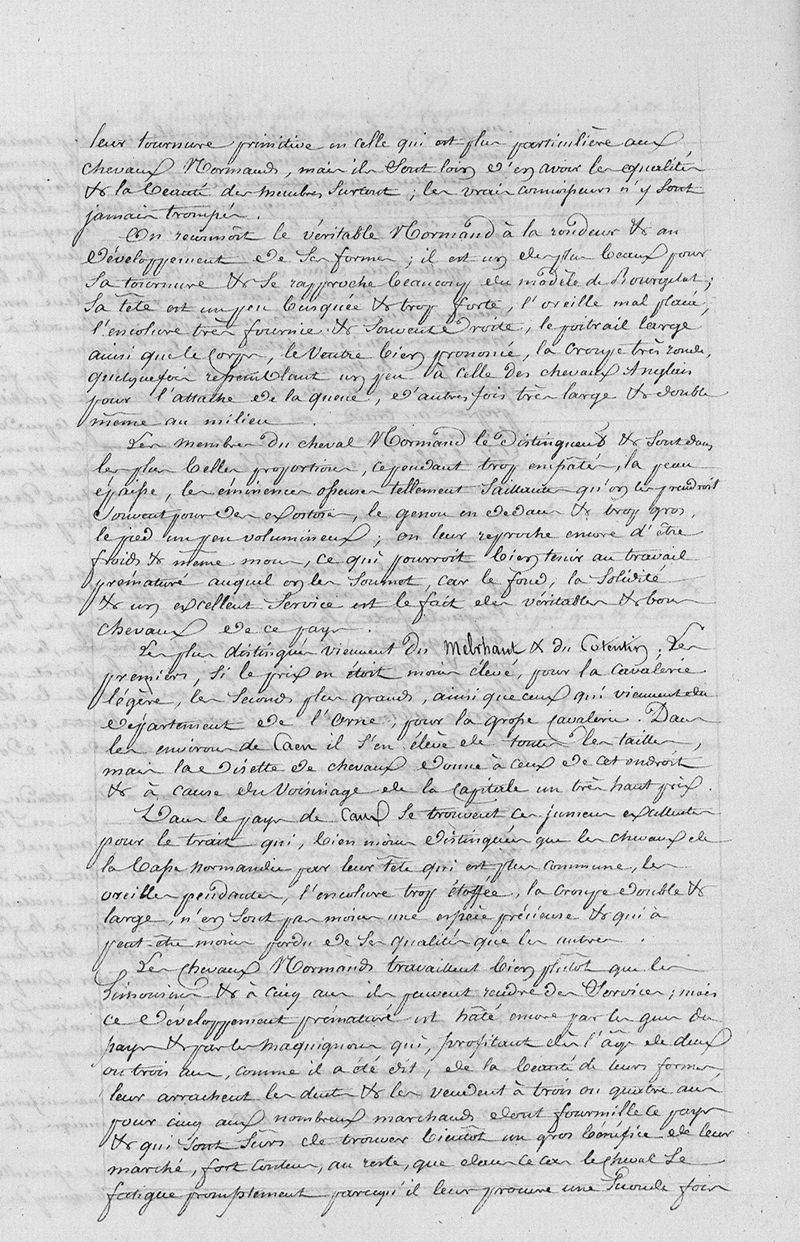 leur tournure primitive en celle qui est plus particulière aux
chevaux Normands, mais ils sont loin d'en avoir les qualités
& la beauté des membres surtout ; les vrais connoisseurs n'y sont
jamais trompés.
On reconnoît le véritable Normand à la rondeur & au
développement de ses formes ; il est un des plus beaux pour
sa tournure & se rapproche beaucoup du modèle de Bourgelat ;
sa tête est un peu busquée & trop forte, l'oreille mal placée,
l'encolure très fournie & souvent droite, le poitrail large
ainsi que le corps, le ventre bien prononcé, la croupe très ronde,
quelquefois ressemblant un peu à celle des chevaux Anglais
pour l'attache de la queue, d'autres fois très large & double
même au milieu.
Les membres du cheval Normand le distinguent & sont dans
les plus belles proportions, cependant trop empâtés, la peau
épaisse, les éminences osseuses tellement saillantes qu'on les prendroit
souvent pour des exostoses, le genou en dedans & trop gros,
le pied un peu volumineux ; on leur reproche encore d'être
froids & même mous, ce qui pourroit bien tenir au travail
prématuré auquel on les soumet, car le fond, la solidité
& un excellent service est le fait des véritables & bons
chevaux de ce pays.
Les plus distingués viennent du Melrhaut & du Cotentin. Les
premiers, si le prix en étoit moins élevé, pour la cavalerie
légère, les seconds plus grands, ainsi que ceux qui viennent du
département de l'Orne, pour la grosse cavalerie. Dans
les environs de Caen il s'en élève de toutes les tailles,
mais la disette de chevaux donne à ceux de cet endroit
& à cause du voisinage de la capitale un très haut prix.
Dans le pays de Caux se trouvent ces jumens excellentes
pour le trait qui, bien moins distinguées que les chevaux de
la basse normandie par leur tête qui est plus commune, les
oreilles pendantes, l'encolure trop étoffée, la croupe double &
large, n'en sont pas moins une espèce précieuse & qui a
peut-être moins perdu de ses qualités que les autres.
Les chevaux Normands travaillent bien plutôt que les
Limousins & à cinq ans ils peuvent rendre des services ; mais
ce développement prématuré est hâté encore par les gens du
pays & par les maquignons qui, profitant dès l'âge de deux
ou trois ans, comme il a été dit, de la beauté de leurs formes,
leur arrachent les dents & les vendent à trois ou quatre ans
pour cinq aux nombreux marchands dont fourmille le pays
& qui sont sûrs de trouver bientôt un gros bénéfice de leur
marché, fort contens, au reste, que dans ce cas le cheval se
fatigue promptement parcequ'il leur procure une seconde fois